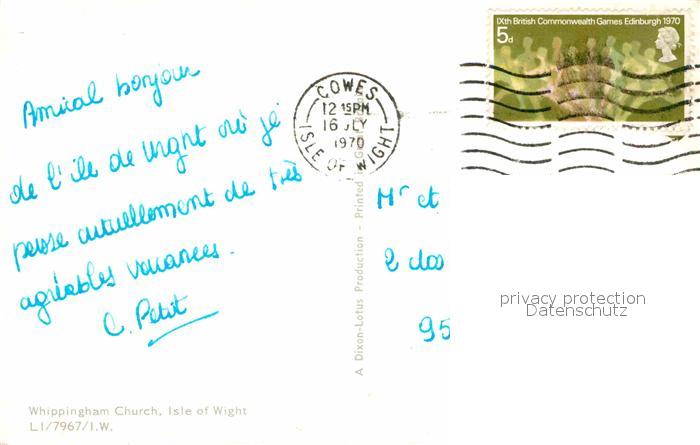 Amical bonjour
de l'île de Wight où je
passe actuellement de très
agréables vacances.
C. Petit
Whippingham Church, Isle of Wight
L1/7967/I.W.
A Dixon-Lotus Production - Printed in
COWES
12 15PM
16 JLY
1970
ISLE OF WIGHT
IXth British Commonwealth Games Edinburgh 1970
5d
Mr et
2
95
privacy protection
Datenschutz